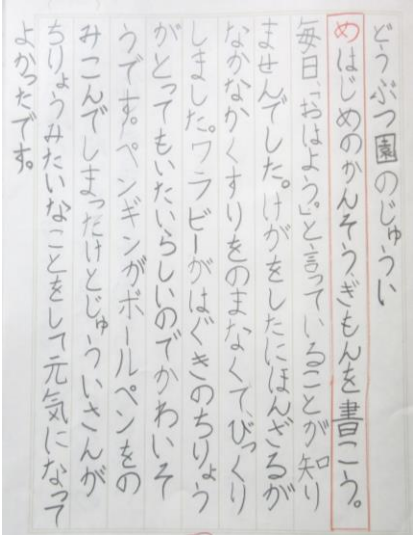 どうぶつ園のじゅうい
めはじめのかんそう、ぎもんを書こう。
毎日、「おはよう。」と言っていることが知り
ませんでした。けがをしたにほんざるが
なかなかくすりをのまなくて、びっくり
しました。ワラビーがはぐきのちりょう
がとってもいたいらしいのでかわいそ
うです。ペンギンがボールペンをの
みこんでしまっだけとじゅういさんが
ちりょうみたいなことをして元気になって
よかったです。